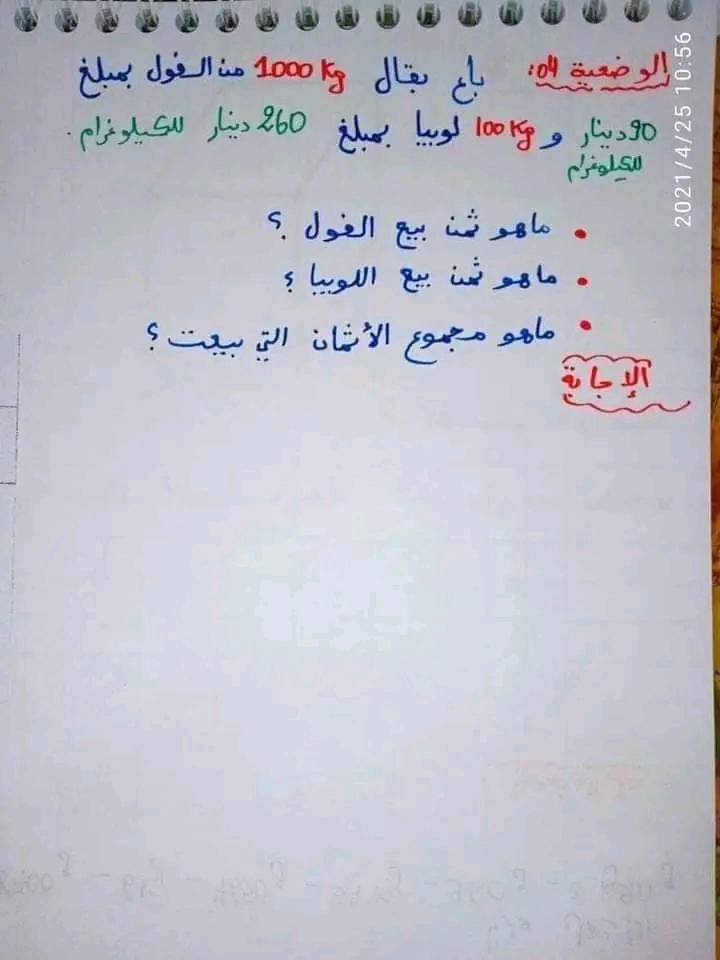 الوضعية 04: باع بقال 1000 Kg من الفول بمبلغ
90 دينار و 100 Kg لوبيا بمبلغ 260 دينار للكيلوغرام.
للكيلوغرام
• ماهو ثمن بيع الفول ؟
• ماهو ثمن بيع اللوبيا ؟
• ماهو مجموع الأثمان التي بيعت ؟
الإجابة
2021/4/25 10:56